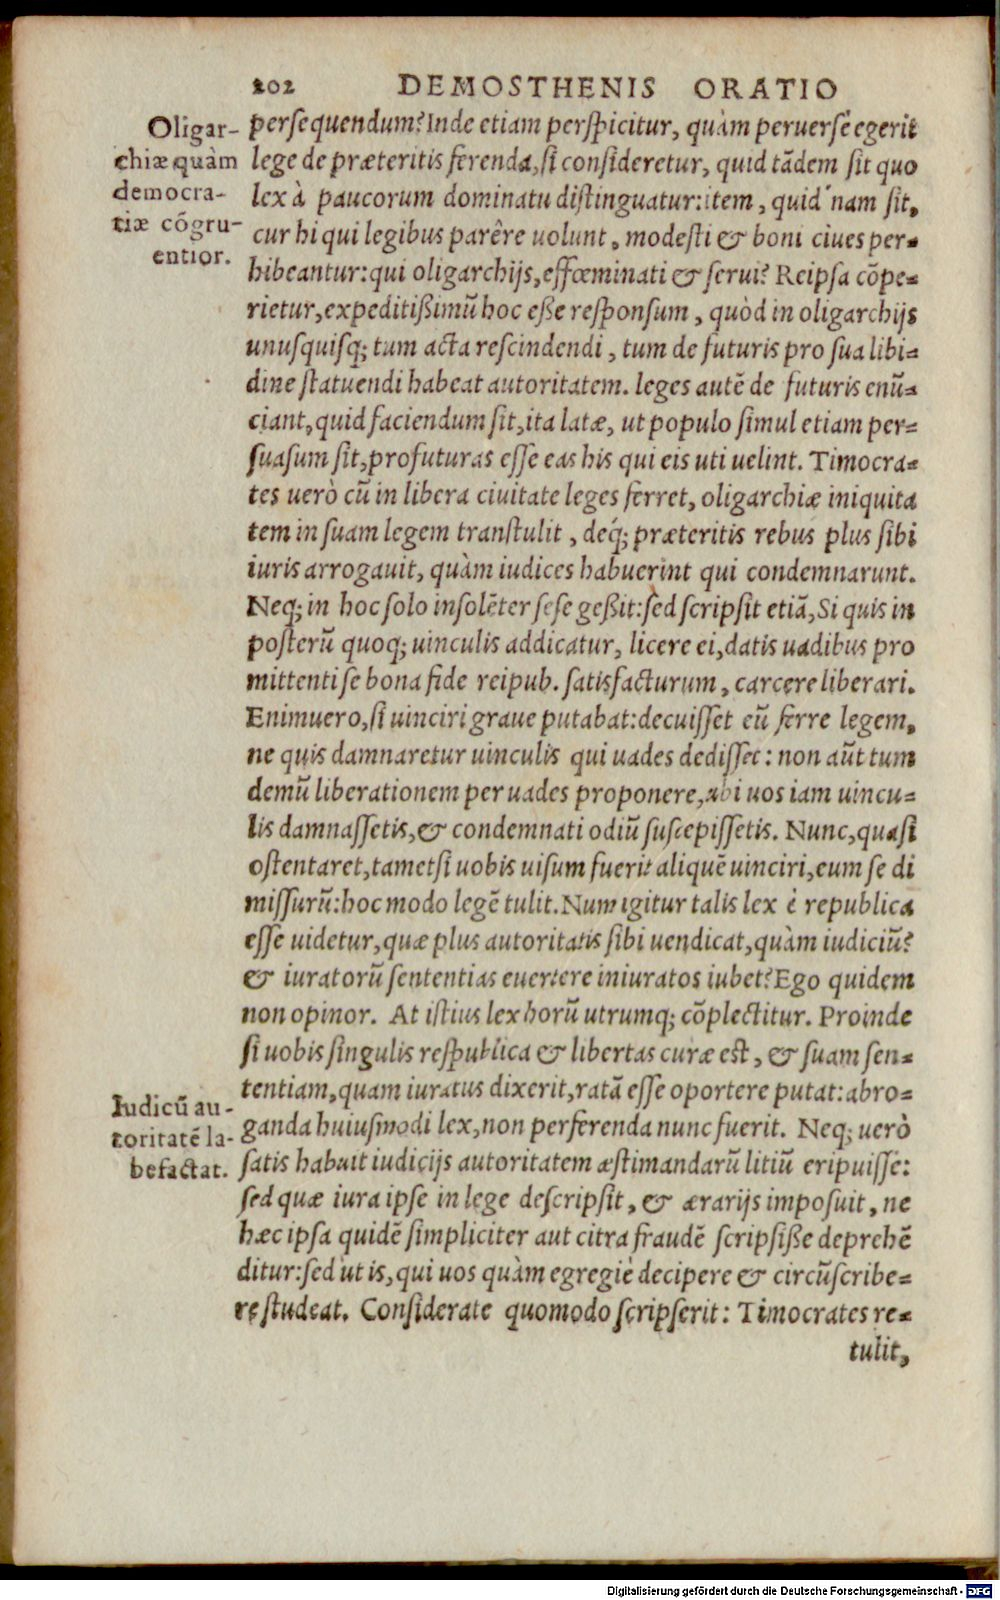 202 DEMOSTHENIS ORATIO
Oligar-
chiæ quàm
democra-
tiæ cõgru-
entior.
persequendum? Inde etiam perspicitur, quàm peruersè egerit
lege de præteritis ferenda, si consideretur, quid tãdem sit quo
lex à paucorum dominatu distinguatur: item, quid'nam sit,
cur hi qui legibus parêre uolunt, modesti & boni ciues per-
hibeantur: qui oligarchijs, effœminati & serui? Reipsa cõpe-
rietur, expeditißimũ hoc eße responsum, quòd in oligarchijs
unusquisq; tum acta rescindendi, tum de futuris pro sua libi-
dine statuendi habeat autoritatem. leges autẽ de futuris enũ-
ciant, quid faciendum sit, ita latæ, ut populo simul etiam per-
suasum sit, profuturas esse eas his qui eis uti uelint. Timocra-
tes uerò cũ in libera ciuitate leges ferret, oligarchiæ iniquita
tem in suam legem transtulit, deq́; præteritis rebus plus sibi
iuris arrogauit, quàm iudices habuerint qui condemnarunt.
Neq; in hoc solo insolẽter sese geßit: sed scripsit etiã, Si quis in
posterũ quoq; uinculis addicatur, licere ei, datis uadibus pro
mittenti se bona fide reipub. satisfacturum, carcere liberari.
Enimuero, si uinciri graue putabat: decuisset eũ ferre legem,
ne quis damnaretur uinculis qui uades dedisset: non aũt tum
demũ liberationem per uades proponere, ubi uos iam uincu-
lis damnassetis, & condemnati odiũ suscepissetis. Nunc, quasi
ostentaret, tametsi uobis uisum fuerit aliquẽ uinciri, eum se di
missurũ: hoc modo legẽ tulit. Num igitur talis lex è republica
esse uidetur, quæ plus autoritatis sibi uendicat, quàm iudiciũ?
& iuratorũ sententias euertere iniuratos iubet? Ego quidem
non opinor. At istius lex horũ utrumq; cõplectitur. Proinde
si uobis singulis respublica & libertas curæ est, & suam sen-
tentiam, quam iuratus dixerit, ratã esse oportere putat: abro-
ganda huiusmodi lex, non perferenda nunc fuerit. Neq; uerò
Iudicũ au-
toritatẽ la-
befactat.
satis habuit iudicijs autoritatem æstimandarũ litiũ eripuisse:
sed quæ iura ipse in lege descripsit, & ærarijs imposuit, ne
hæc ipsa quidẽ simpliciter aut citra fraudẽ scripsiße deprehẽ
ditur: sed ut is, qui uos quàm egregiè decipere & circũscribe-
re studeat. Considerate quomodo scripserit: Timocrates re-
tulit,
Digitalisierung gefördert durch die Deutsche Forschungsgemeinschaft - DFG